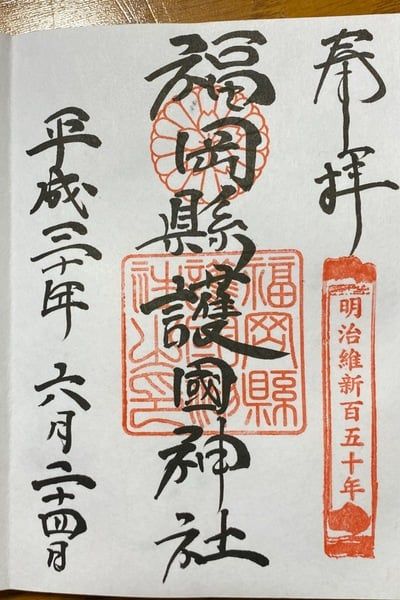 奉拝
明治維新百五十年
福岡縣護國神社
平成三十年 六月二十四日